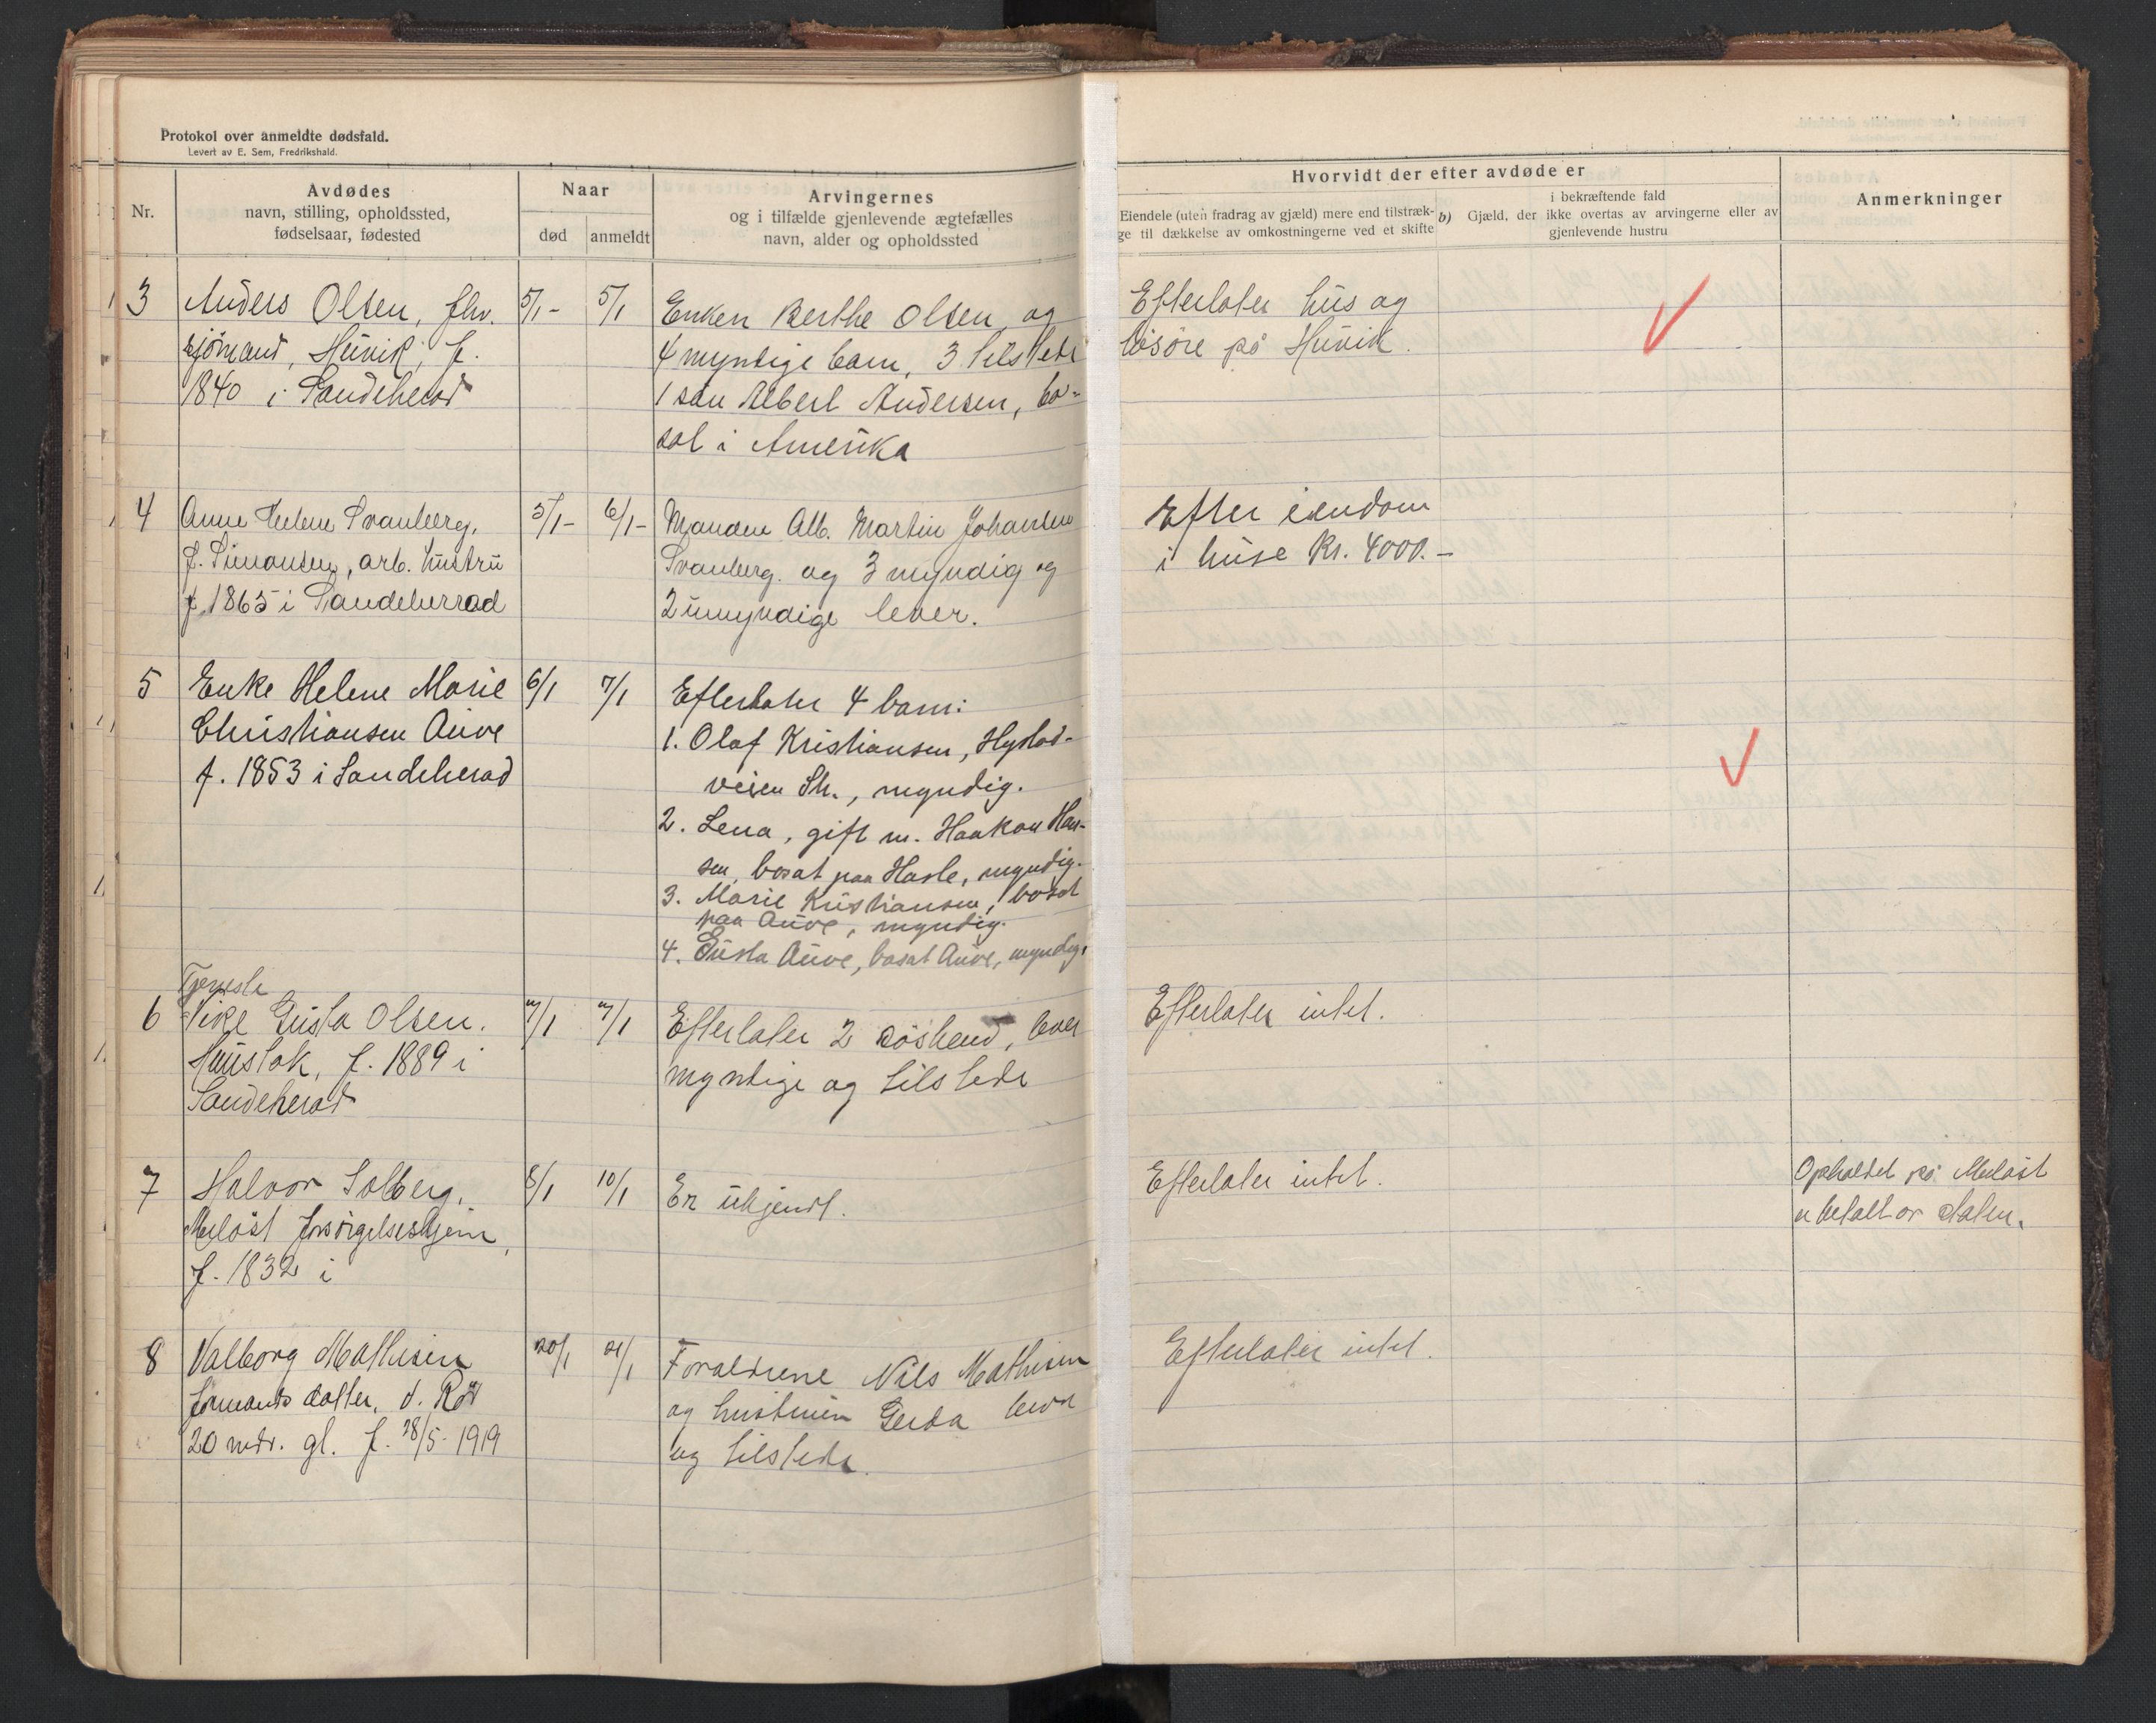 Protokol over anmeldte dødsfald.
Levert av E. Sem, Fredrikshald.
Nr.
Avdødes
navn, stilling, opholdssted,
fødselsaar, fødested
Naar
død
anmeldt
Arvingernes
og i tilfælde gjenlevende ægtefælles
navn, alder og opholdssted
Hvorvidt der efter avdøde er
Eiendele (uten fradrag av gjæld) mere end tilstræk-
ge til dækkelse av omkostningerne ved et skifte
b) Gjæld, der
i bekræftende fald
ikke overtas av arvingerne eller av
gjenlevende hustru
Anmerkninger
3
Anders Olsen, fhv.
sjömand, Hunik, f.
1840 i Sandeherad
5/1 -
5/1
Enken Berthe Olsen og
4 myndige barn, 3 tilstede
1 søn Albert Andersen, bo-
sat i Amerika
Efterlater hus og
løsøre på Hunik.
4
Anne Helene Svanberg,
f. Simonsen, arb. hustru
f. 1865 i Sandeherrad
5/1 -
6/1 -
Manden Alb. Martin Johansen
Svanberg. og 3 myndig og
2 umyndige lever.
Efter eiendom
i huse Kr. 4000.-
5
Enke Helene Marie
Christiansen Auve
f. 1853 i Sandeherad
6/1
7/1
Efterlater 4 barn:
1. Olaf Kristiansen, Hystad-
veien Sh., myndig.
2. Lena, gift m. Haakon Han-
sen, bosat paa Hasle, myndig.
3. Marie Kristiansen, bosat
paa Auve, myndig.
4. Gusta Auve, bosat Auve, myndig.
6
Tjeneste
Pike Gusta Olsen.
f. 1889 i
Sandeherad
7/1
7/1
Efterlater 2 søskend, lever
myndige og tilstede
Efterlater intet.
7
Halvor Solberg,
Merløst forsörgelseshjem,
f. 1832 i
8/1
10/1
Er ukjendt.
Efterlater intet.
Opholdet på Merløst
er betalt av staten.
8
Valborg Mathisen
formands datter, d. Röd
20 mdr. gl. f. 28/5- 1919
20/1
21/1
Foraldrene Nils Mathisen
og hustruen Gerda lever
og tilstede.
Efterlater intet.